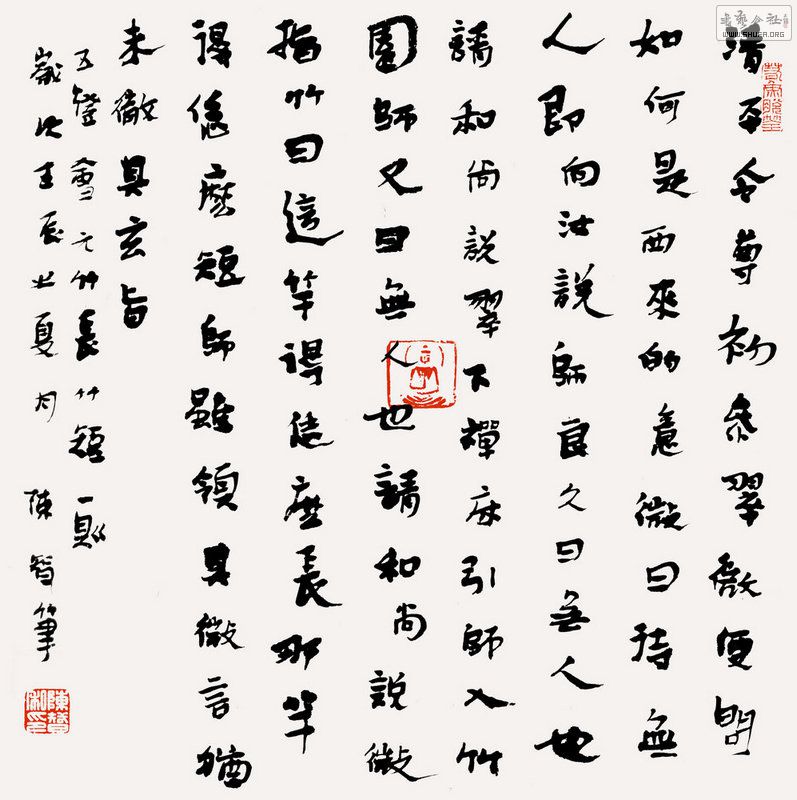 清平令尊初參翠微便問
如何是西來的意微曰待無
人即向汝說師良久曰無人也
請和尚說翠下禪床引師入竹
園師又曰無人也請和尚說微
指竹曰這竿得恁麼長那竿
得恁麼短師雖領其微言猶
未徹其玄旨
五燈會元竹長竹短一則
歲次壬辰之夏月 陳智筆
書藝公社
WWW.SHUFA.ORG